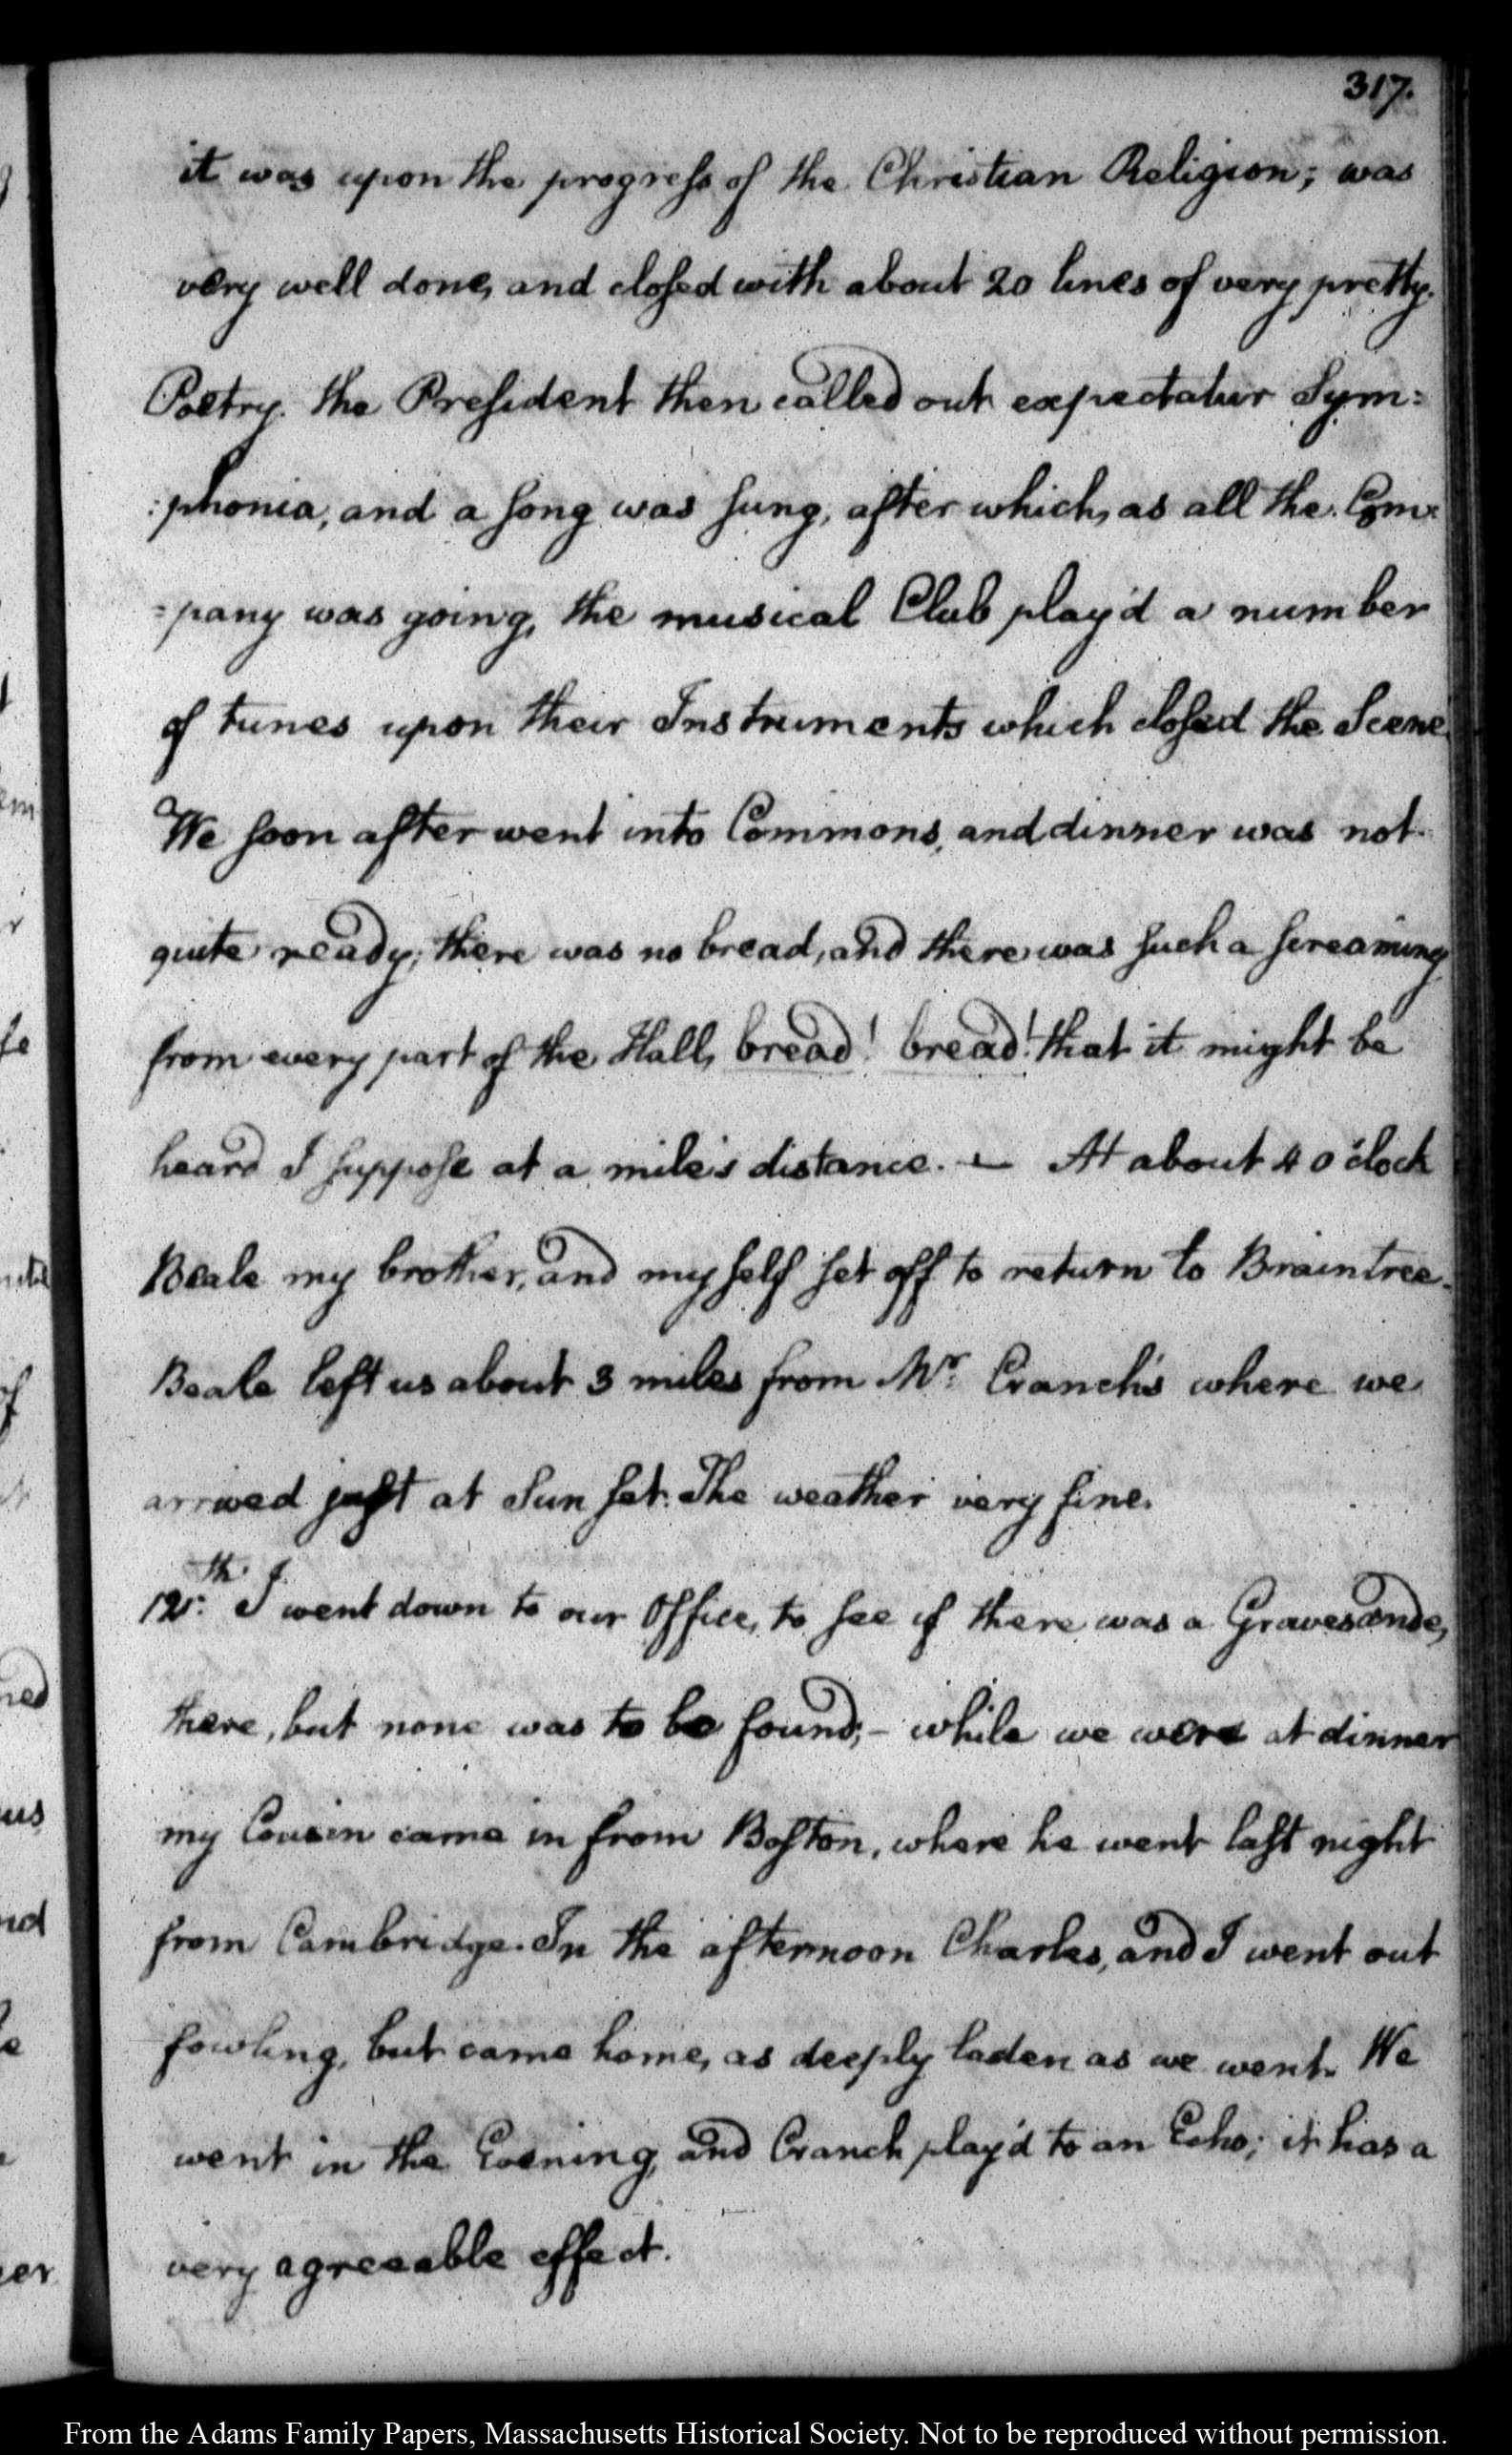 317.
it was upon the progress of the Christian Religion; was
very well done, and closed with about 20 lines of very pretty
Poetry. the President then called out expectatur Sym=
:phonia, and a song was sung, after which, as all the Com=
=pany was going, the musical Club play'd a number
of tunes upon their Instruments which closed the Scene
We soon after went into Commons, and dinner was not
quite ready; there was no bread, and there was such a screaming
from every part of the Hall, bread! bread! that it might be
heard I suppose at a mile's distance. — At about 4 o'clock
Beale my brother, and myself set off to return to Braintree.
Beale left us about 3 miles from Mr. Cranch's where we
arrived just at Sun set. The weather very fine.
12th. I went down to our Office, to see if there was a Gravesande,
there, but none was to be found; – while we were at dinner
my Cousin came in from Boston, where he went last night
from Cambridge. In the afternoon Charles, and I went out
fowling, but came home, as deeply laden as we went. We
went in the Evening, and Cranch play'd to an Echo; it has a
very agreeable effect.
From the Adams Family Papers, Massachusetts Historical Society. Not to be reproduced without permission.